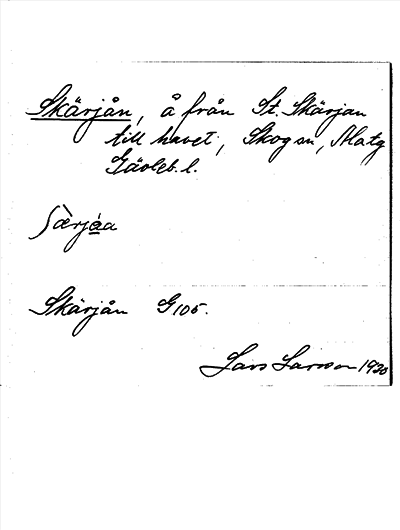 Skärjån, å från St. Skärjan
till havet, Skog sn,
Gävleb. l.
Skärjån G 105.
Lars Larsson 1930